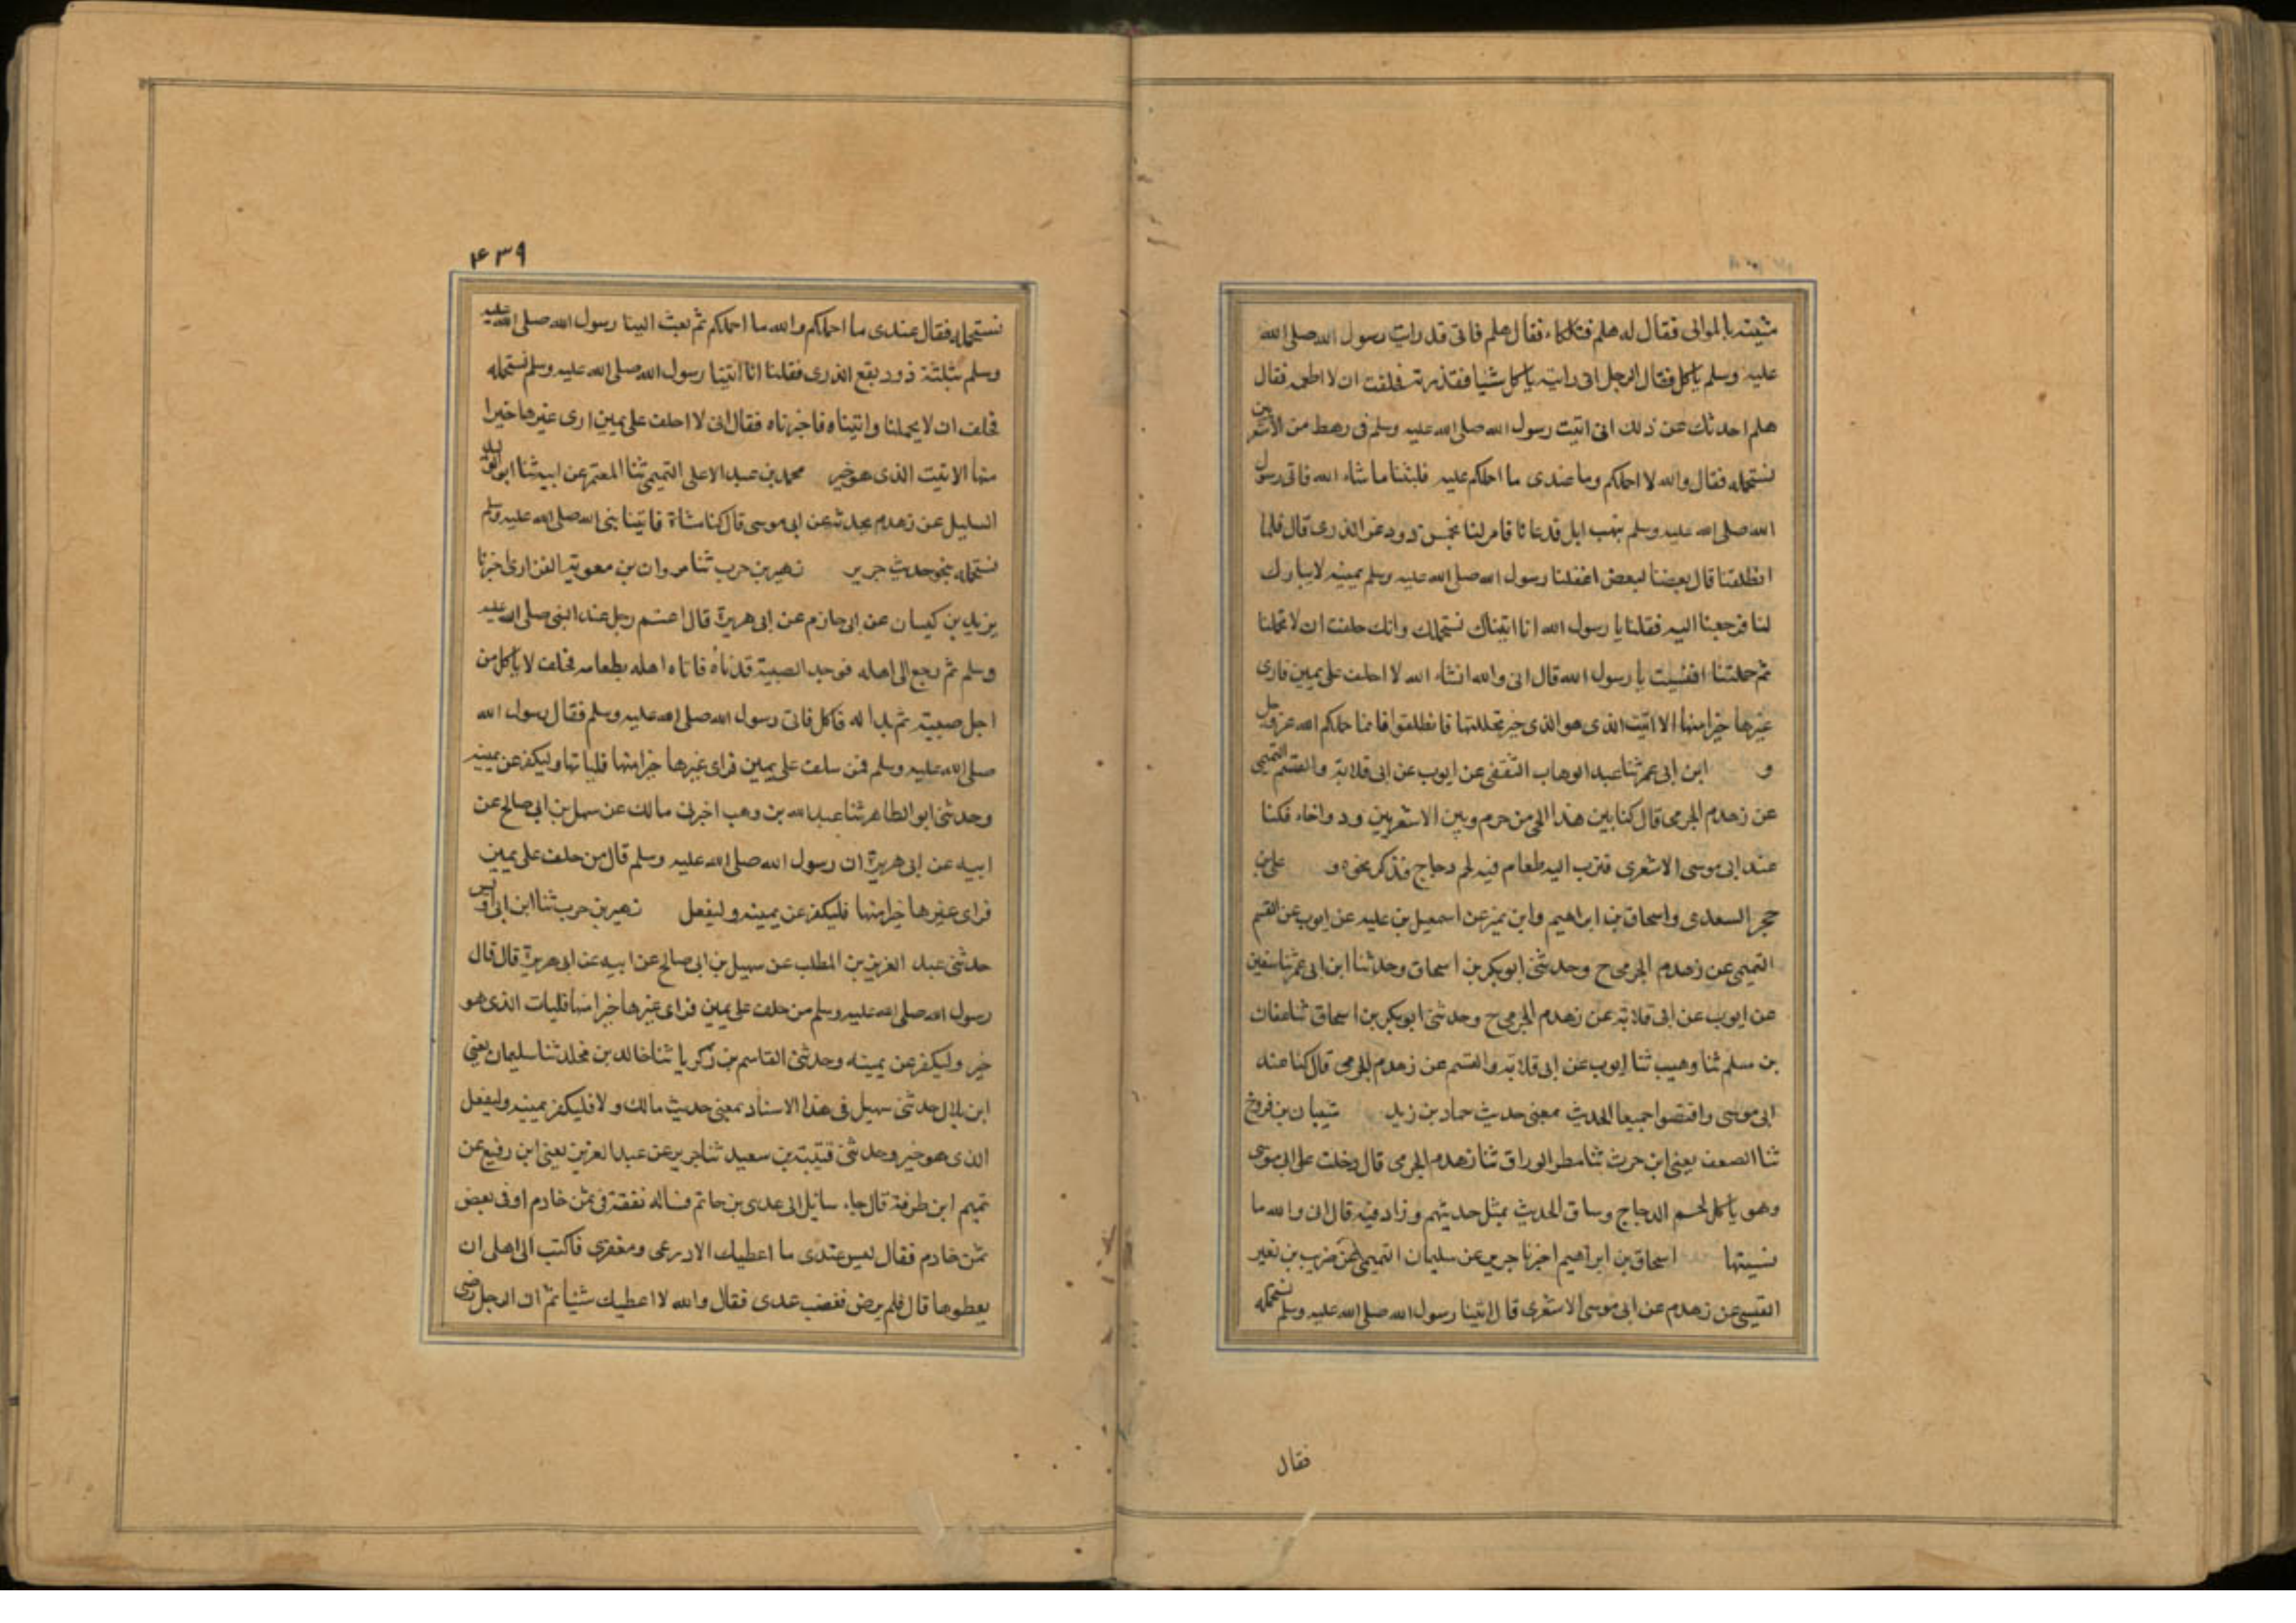 شبيه بالموالى فقال له هلم فتلكاء فقال هلم فانى قد رايت رسول الله صلى الله
عليه وسلم ياكل فقال الرجل انى رايته ياكل شيا فقذرته فحلفت ان لا اطعمه فقال
هلم احدثك عن ذلك انى اتيت رسول الله صلى الله عليه وسلم فى رهط من الاشعريين
نستحمله فقال والله لا احملكم وما عندى ما احملكم عليه فلبثنا ما شاء الله فاتى رسول
الله صلى الله عليه وسلم بنهب ابل فدعا نا فامر لنا بخمس ذود غر الذرى قال فلما
انطلقنا قال بعضنا لبعض اغفلنا رسول الله صلى الله عليه وسلم يمينه لا يبارك
لنا فرجعنا اليه فقلنا يا رسول الله انا اتيناك نستحملك وانك حلفت ان لا تحملنا
ثم حملتنا افنسيت يا رسول الله قال انى والله انشاء الله لا احلف على يمين فارى
غيرها خيرا منها الا اتيت الذى هو الذى خير تحللتها فانطلقوا فانما حملكم الله عز وجل
و ابن ابى عمر ثنا عبد الوهاب الثقفى عن ايوب عن ابى قلابة والقسم التميمى
عن زهدم الجرمى قال كنا بين هذا الحى من جرم وبين الاشعريين ود واخاء فكنا
عند ابى موسى الاشعرى فقرب اليه طعام فيه لحم دجاج فذكر نحوه و على بن
حجر السعدى واسحاق بن ابراهيم وابن نمير عن اسمعيل بن عليه عن ايوب عن القسم
التميمى عن زهدم الجرمى ح وحدثنى ابو بكر بن اسحاق وحدثنا ابن ابى عمر ثنا سفين
عن ايوب عن ابى قلابة عن زهدم الجرمى ح وحدثنى ابو بكر بن اسحاق ثنا عفان
بن مسلم ثنا وهيب ثنا ايوب عن ابى قلابة والقسم عن زهدم الجرمى قال كنا عند
ابى موسى واقتصوا جميعا الحدث بمعنى حديث حماد بن زيد شيبان بن فروخ
ثنا الصعق يعنى ابن حرث ثنا مطر الوراق ثنا زهدم الجرمى قال دخلت على ابى موسى
وهو ياكل لحم الدجاج وساق الحديث بمثل حديثهم وزاد فيه قال انى والله ما
نسيتها اسحاق بن ابراهيم اخبرنا جرير عن سليمان التميمى عن ضريب بن نقير
القيسى عن زهدم عن ابى موسى الاشعرى قال اتينا رسول الله صلى الله عليه وسلم نستحمله
فقال
٤٣٩
نستحمله فقال عندى ما احملكم والله ما احملكم ثم بعث الينا رسول الله صلى الله عليه
وسلم بثلثة ذود بقع الذرى فقلنا انا اتينا رسول الله صلى الله عليه وسلم نستحمله
فحلف ان لا يحملنا واتيناه فاخبرناه فقال انى لا احلف على يمين ارى غيرها خيرا
منها الا اتيت الذى هو خير محمد بن عبد الاعلى التميمى ثنا المعتمر عن ابيه ثنا ابو
السليل عن زهدم يحدثه عن ابى موسى قال كنا مشاة فاتينا نبى الله صلى الله عليه وسلم
نستحمله بنحو حديث جرير زهير بن حرب ثنا مروان بن معوية الفزارى اخبرنا
يزيد بن كيسان عن ابى حازم عن ابى هريرة قال اعتم رجل عند النبى صلى الله عليه
وسلم ثم رجع الى اهله فوجد الصبية قد ناموا فاتاه اهله بطعامه فحلف لا ياكل من
اجل صبيته ثم بدا له فاكل فاتى رسول الله صلى الله عليه وسلم فقال رسول الله
صلى الله عليه وسلم فمن حلف على يمين فراى غيرها خيرا منها فلياتها وليكفر عن يمينه
وحدثنى ابو الطاهر ثنا عبد الله بن وهب اخبرنى مالك عن سهل بن ابى صالح عن
ابيه عن ابى هريرة ان رسول الله صلى الله عليه وسلم قال من حلف على يمين
فراى غيرها خيرا منها فليكفر عن يمينه وليفعل زهير بن حرب ثنا ابن ابى اويس
حدثنى عبد العزيز بن المطلب عن سهيل بن ابى صالح عن ابيه عن ابى هريرة قال قال
رسول الله صلى الله عليه وسلم من حلف على يمين فراى غيرها خيرا منها فليات الذى هو
خير وليكفر عن يمينه وحدثنى القاسم بن زكريا ثنا خالد بن مخلد ثنا سليمان يعنى
ابن بلال حدثنى سهيل فى هذا الاسناد بمعنى حديث مالك ولا فليكفر يمينه وليفعل
الذى هو خير وحدثنى قتيبة بن سعيد ثنا جرير عن عبد العزيز يعنى ابن رفيع عن
تميم ابن طرفة قال جاء سائل الى عدى بن حاتم فساله نفقة فى ثمن خادم او فى بعض
ثمن خادم فقال ليس عندى ما اعطيك الا درعى ومغفرى فاكتب الى اهلى ان
يعطوها قال فلم يرض فغضب عدى فقال والله لا اعطيك شيئا ثم ان الرجل رضى